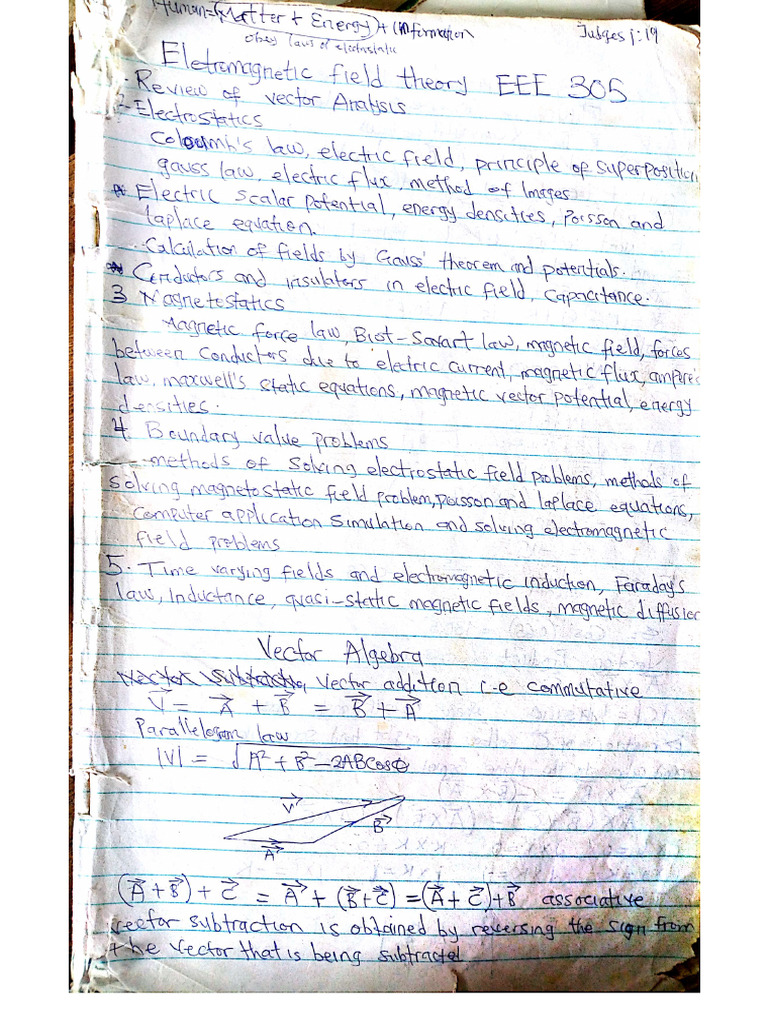 Human = (Matter + Energy) + (Information
Judges 1:19
obey laws of electrostatic
Eletromagnetic field theory EEE 305
- Review of vector Analysis
2- Electrostatics
Coloumb's law, electric field, principle of superposition
gauss law, electric flux, method of Images
* Electric scalar potential, energy densities, Poisson and
laplace equation.
- Calculation of fields by Gauss' theorem and potentials.
* Conductors and insulators in electric field, Capacitance.
3 Magnetostatics
Magnetic force law, Biot-Savart law, magnetic field, forces
between conductors due to electric current, magnetic flux, ampere's
law, maxwell's static equations, magnetic vector potential, energy
densities.
4. Boundary value problems
- methods of solving electrostatic field problems, methods of
solving magnetostatic field problem, poisson and laplace equations,
computer application simulation and solving electromagnetic
field problems
5. Time varying fields and electromagnetic induction, Faraday's
law, Inductance, quasi-static magnetic fields, magnetic diffusion
Vector Algebra
Vector addition i.e commutative
V⃗ = A⃗ + B⃗ = B⃗ + A⃗
Parallelogam law
|V| = √A² + B² - 2ABCosθ
V⃗
B⃗
A⃗
(A⃗ + B⃗) + C⃗ = A⃗ + (B⃗ + C⃗) = (A⃗ + C⃗) + B⃗ associative
vector subtraction is obtained by reversing the sign from
the vector that is being subtracted